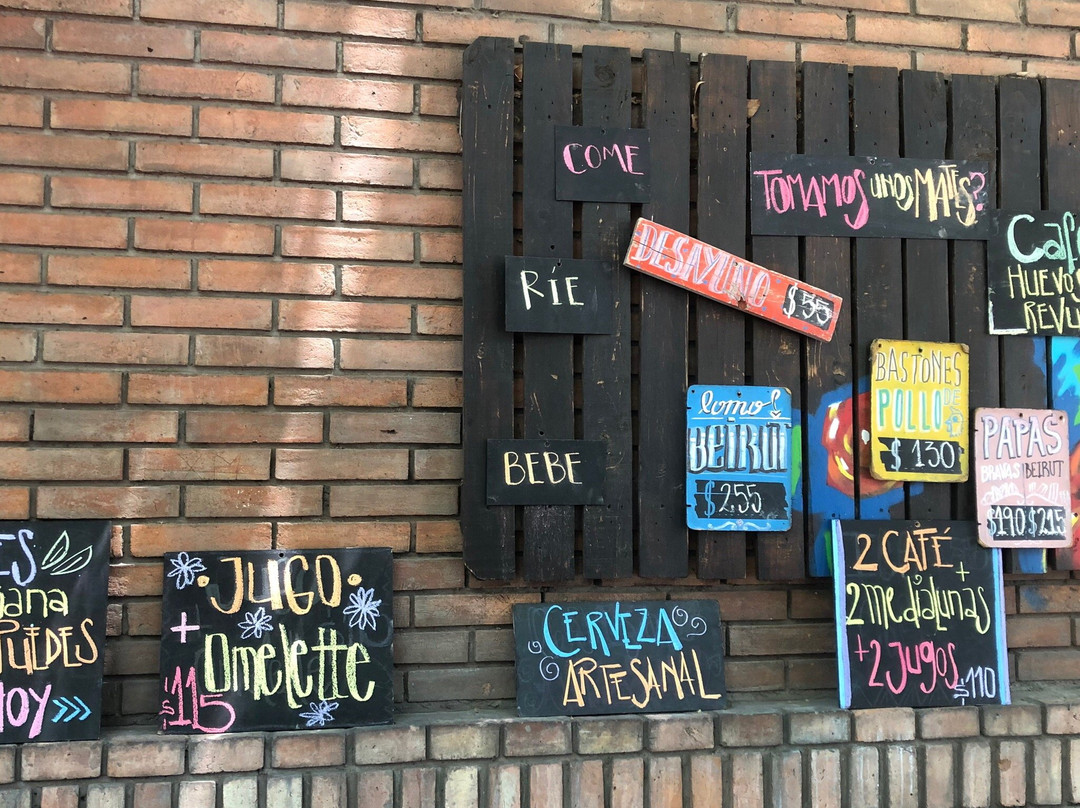 COME
RÍE
BEBE
TOMAMOS UNOS MATES?
DESAYUNO $55
Café
HUEVOS
REVU
lomo!
BEIRUT
$255
BASTONES
DE
POLLO
$130
PAPAS
BRAVAS BEIRUT
$190 $215
ES
iana
PUIDES
Hoy
JUGO
+
Omelette
$115
CERVEZA
ARTESANAL
2 CAFÉ
+
2 medialunas
+2 Jugos
$110